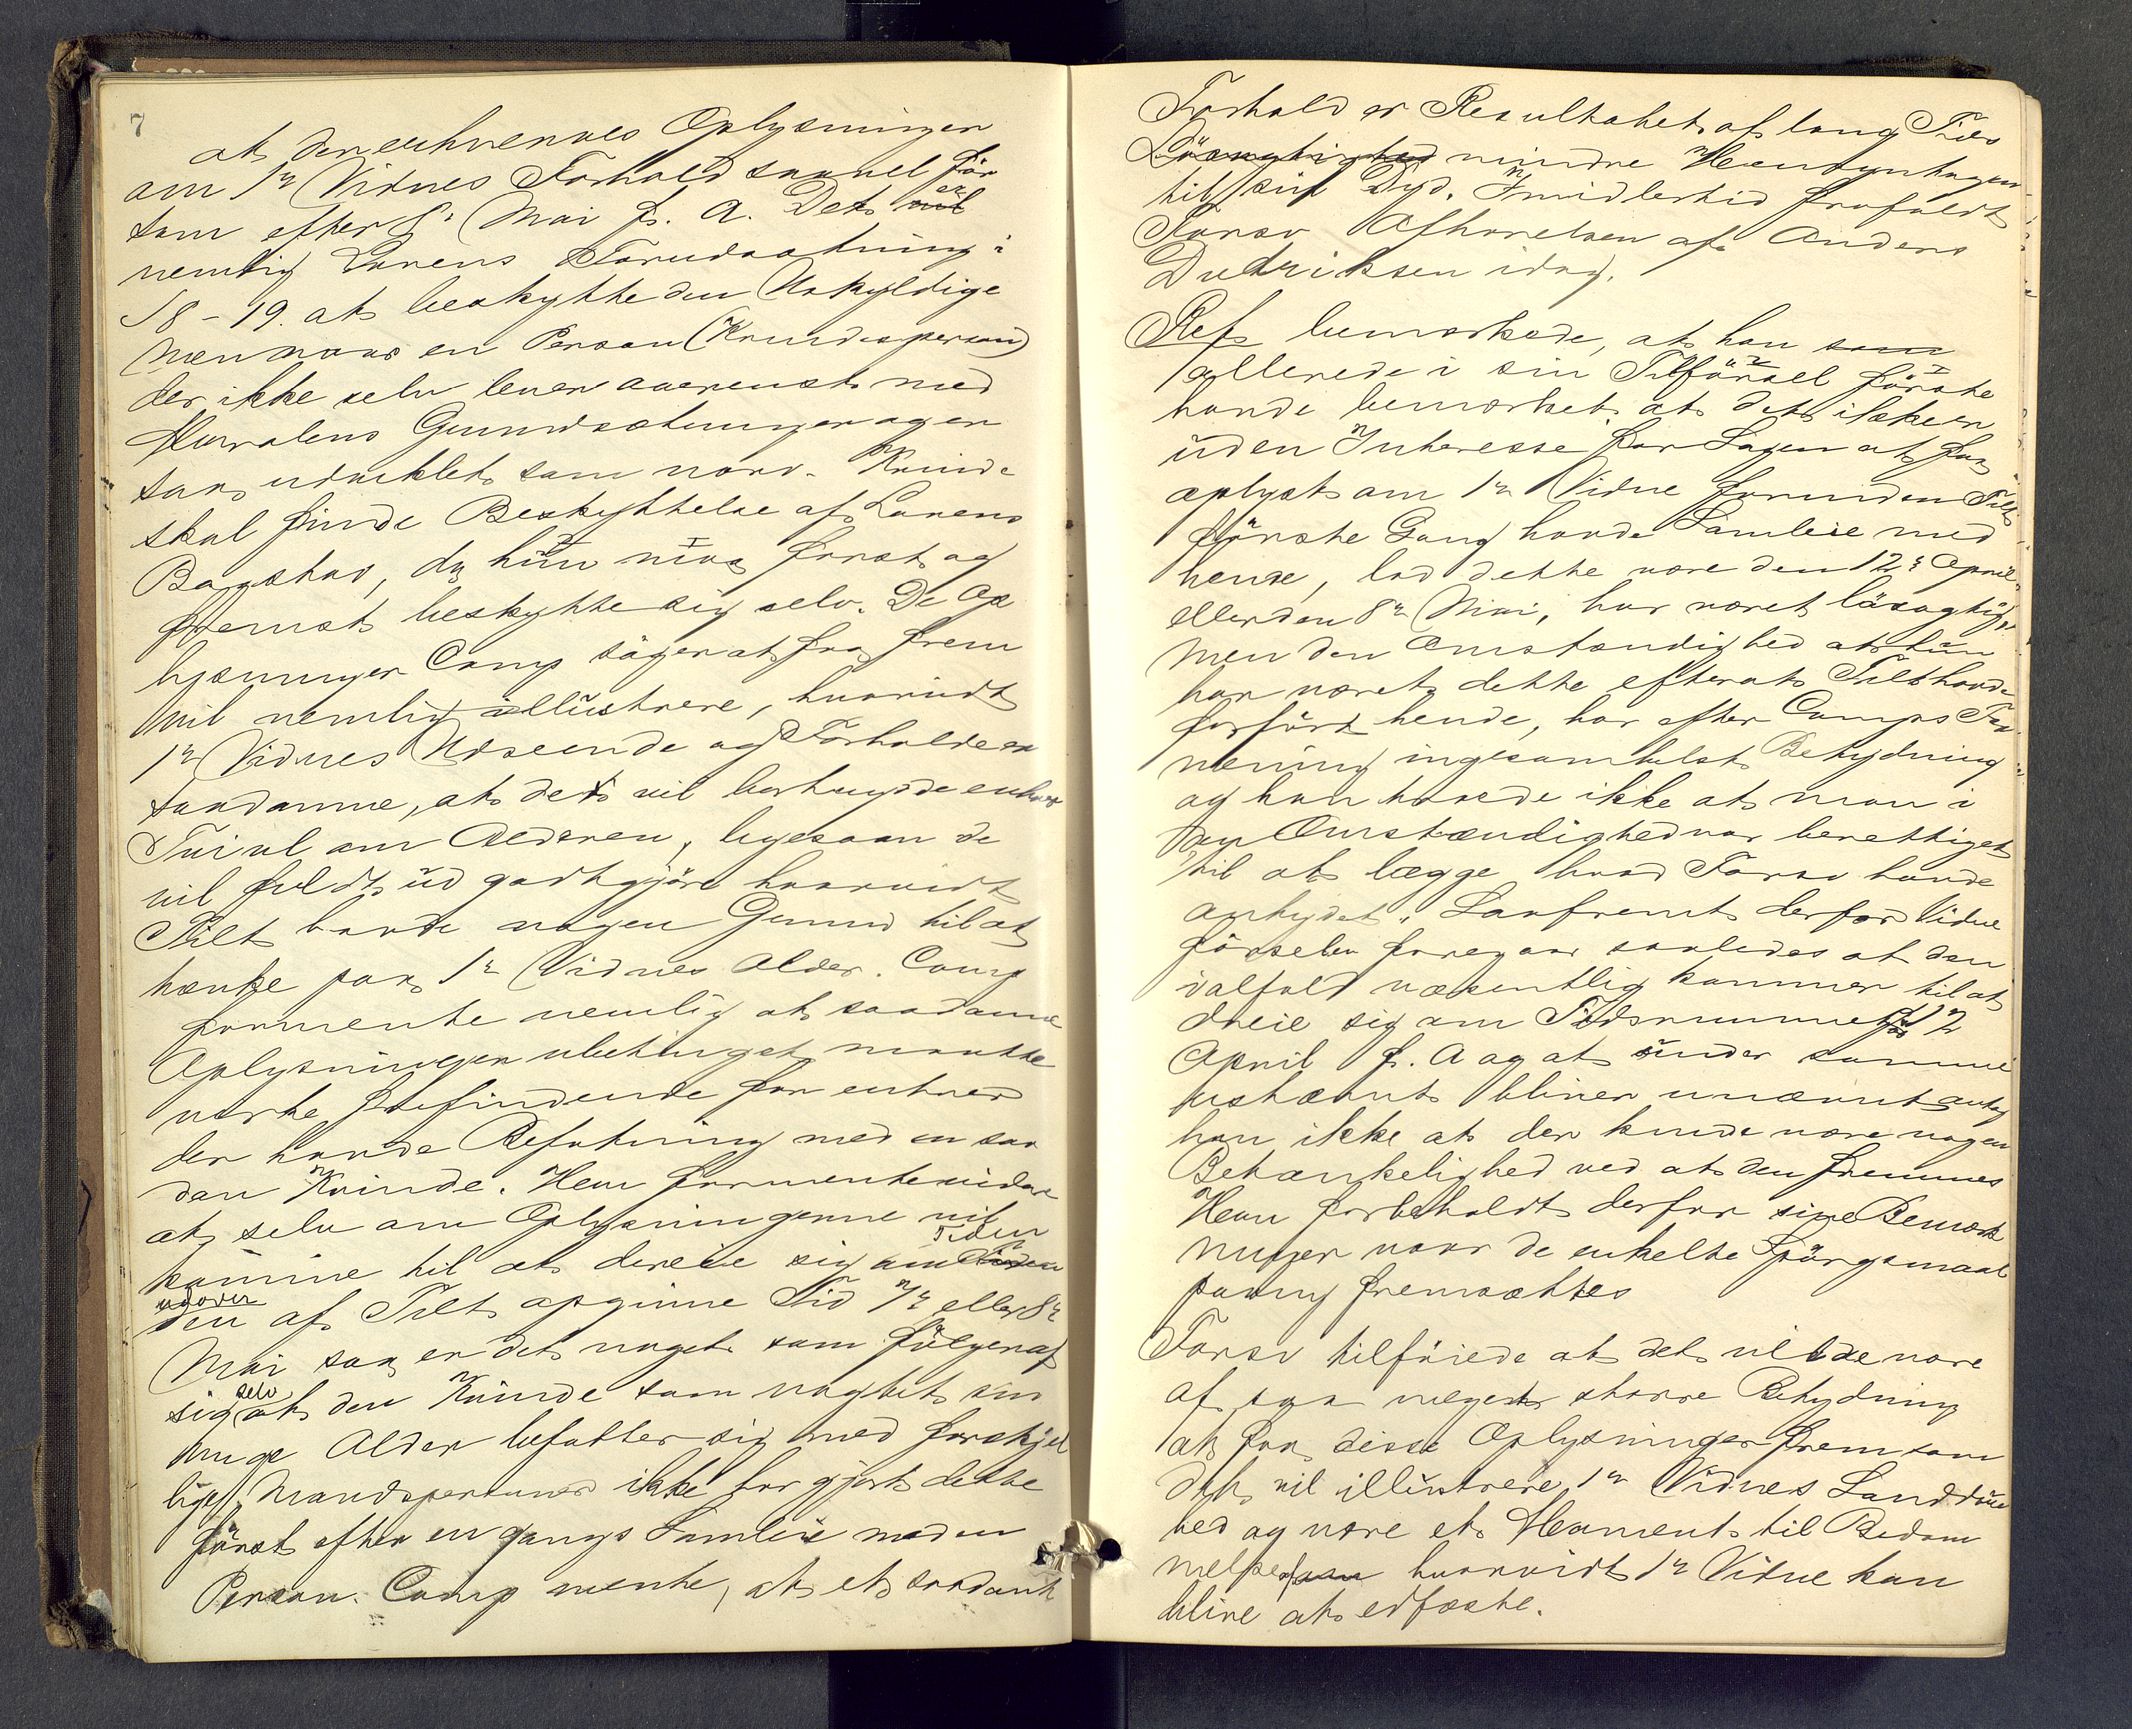 7
at der erhverves Oplysninger
om 1ste Vidnes Forhold saavel før
som efter 8de Mai f. A. Det er
nemlig Lovens Forudsætning i
18-19. at beskytte den Uskyldige
Men naar en Person (Kvindesperson)
der ikke selv lever overenst med
Moralens Grundsætninger og er
saa udviklet som voxn Kvinde
skal finde Beskyttelse af Lovens
Bogstav, da hun maa først og
fremst beskytte sig selv. De Op
lysninger Camp søger at faa frem
vil nemlig illustrere, hvorvidt
1ste Vidnes Udseende og Forhold er
saadanne, at det vil berhugge enhver
Tvivl om Alderen, ligesom de
vil fuldt ud godtgjøre hvorvidt
Tilt havde nogen Grund til at
tænke paa 1ste Vidnes Alder. Camp
formente nemlig at saadanne
Oplysninger ubetinget maatte
virke for enhver
der havde Befatning med en saa
dan Kvinde. Han formente videre
at selv om Oplysningerne vil
komme til at dreie sig om Tiden
udover den af Tilt opgivne Tid 7de eller 8de
Mai saa er det noget som følger af
sig selv at den Kvinde som nogtet sin
unge Alder befatter sig med forskjel
lige Mandspersoner ikke har gjort dette
først efter en gangs Samleie med en
Person. Camp mente, at et saadant
Forhold er Resultatet af lang Tids
Løsagtighed mindre Hensyntagen
til sin Dyd. Imidlertid frafaldt
Forsv Afhørelsen af Anders
Dideriksen idag.
Ref bemærkede, at han som
allerede i sin Tilførsel første
havde bemærket at det ikke er
uden Interesse for Sagen at faa
oplyst om 1ste Vidne forinden Tilt
første Gang havde Samleie med
hende, lad dette være den 12te April
eller den 8de Mai, har været løsagtig,
Men den Omstændighed at hun
har været dette efterat Tilt havde
forført hende, har efter Camps For
mening ingensomhelst Betydning
og han troede ikke at man i
den Omstændighed var berettiget
til at lægge hvad Forsv havde
antydet. Saafremt derfor Vidne
førselen foregaar saaledes at den
ialfald væsentlig kommer til at
dreie sig om Tidsrummet før 12
April f. A og at under samme
ustævnt bliver unævnt antog
han ikke at der kunde være nogen
Betænkelighed ved at den fremmes
Han forbeholdt derfor sine Bemærk
ninger naar de enkelte Spørgsmaal
paany fremsættes
Forsv tilføiede at det vilde være
af saa meget større Betydning
at faa disse Oplysninger frem som
det vil illustrere 1ste Vidnes Sanddru
hed og være et Moment til Bedøm
melse om hvorvidt 1ste Vidne kan
blive at edfæste.